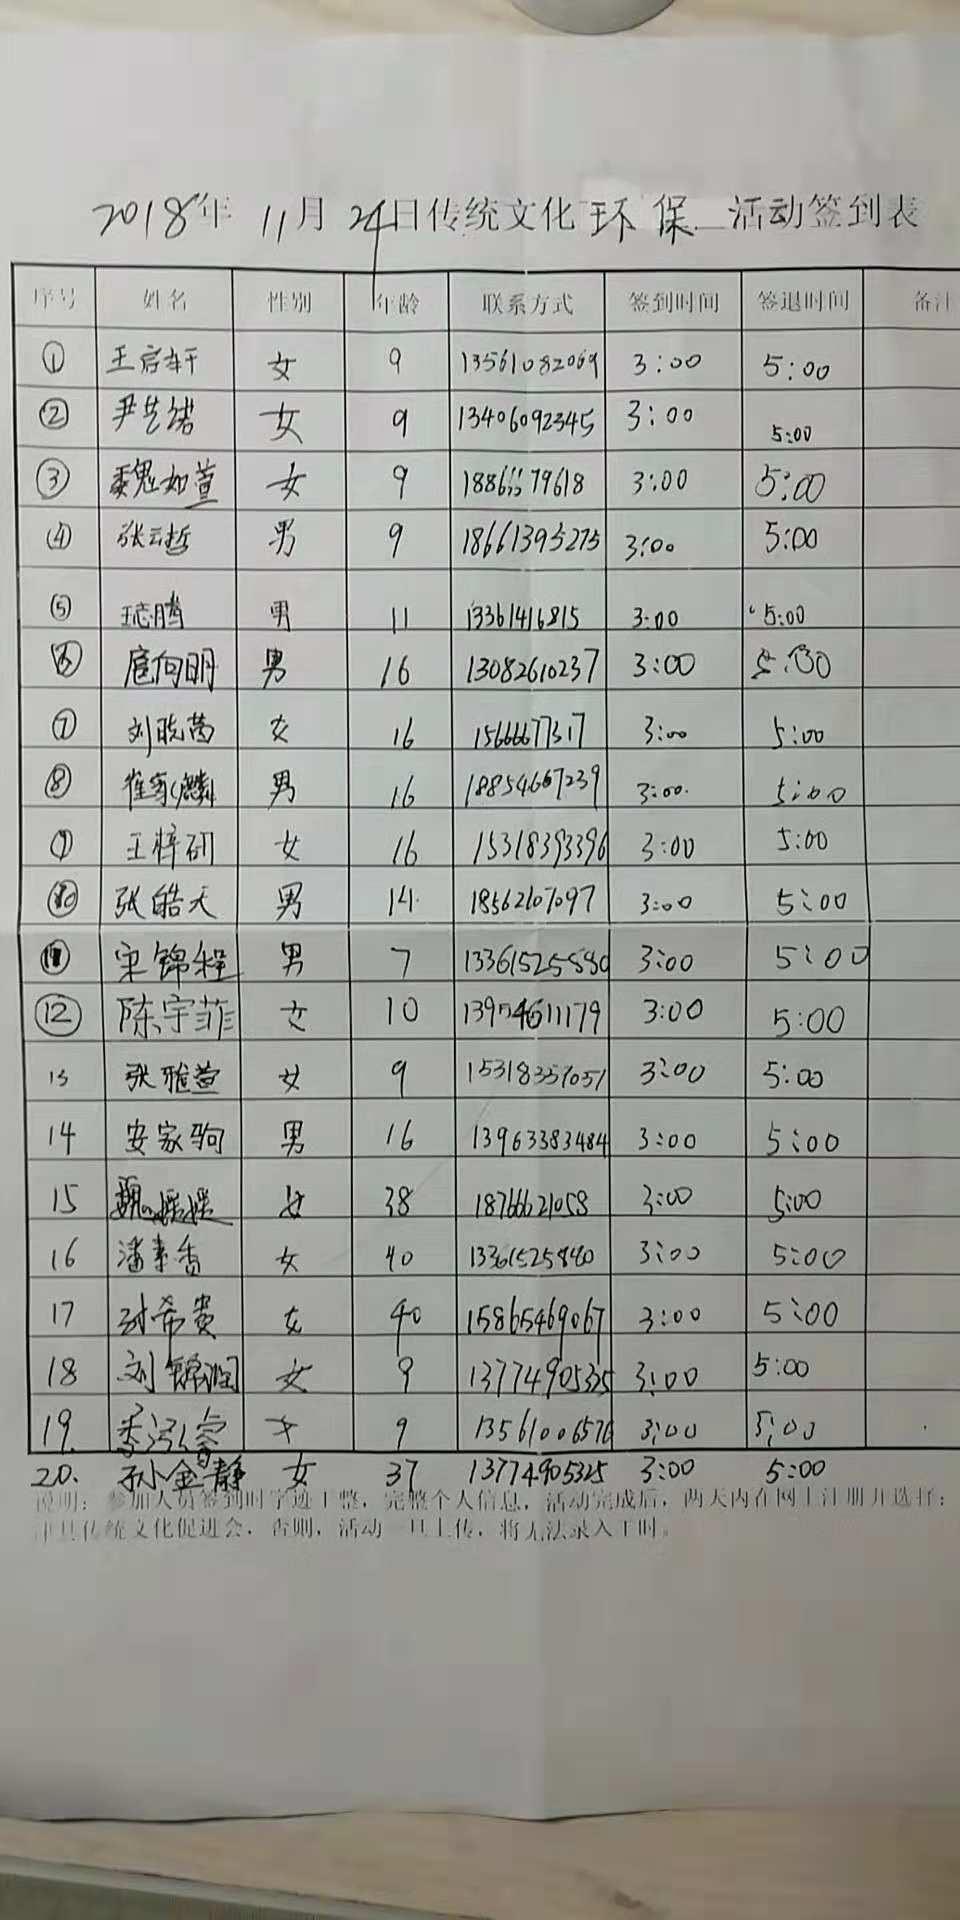 2018年 11月 24日传统文化 环保 活动签到表
序号 姓名 性别 年龄 联系方式 签到时间 签退时间 备注
① 王启轩 女 9 13561082069 3:00 5:00
② 尹艺诺 女 9 13406092345 3:00 5:00
③ 魏如萱 女 9 3:00 5:00
④ 张云哲 男 9 18661395275 3:00 5:00
⑤ 男 11 13361416815 3:00 5:00
⑥ 扈向明 男 16 13082610237 3:00 5:00
⑦ 刘晓茜 女 16 15666677317 3:00 5:00
⑧ 崔家麟 男 16 18854667239 3:00 5:00
⑨ 王梓研 女 16 15318393396 3:00 5:00
⑩ 张皓天 男 14 18562107097 3:00 5:00
⑪ 宋锦程 男 7 13361525880 3:00 5:00
⑫ 陈宇菲 女 10 13954611179 3:00 5:00
13 张雅萱 女 9 15318357051 3:00 5:00
14 安家驹 男 16 13963383484 3:00 5:00
15 魏媛媛 女 38 18766621058 3:00 5:00
16 潘素香 女 40 13361525880 3:00 5:00
17 封希贵 女 40 15865469067 3:00 5:00
18 刘锦润 女 9 13774905325 3:00 5:00
19. 李泓睿 女 9 13561006576 3:00 5:00
20. 孙金静 女 37 13774905325 3:00 5:00
说明：参加人员签到时字迹工整，完整个人信息，活动完成后，两天内在网上注册并选择：
津县传统文化促进会，否则，活动一旦上传，将无法录入工时。